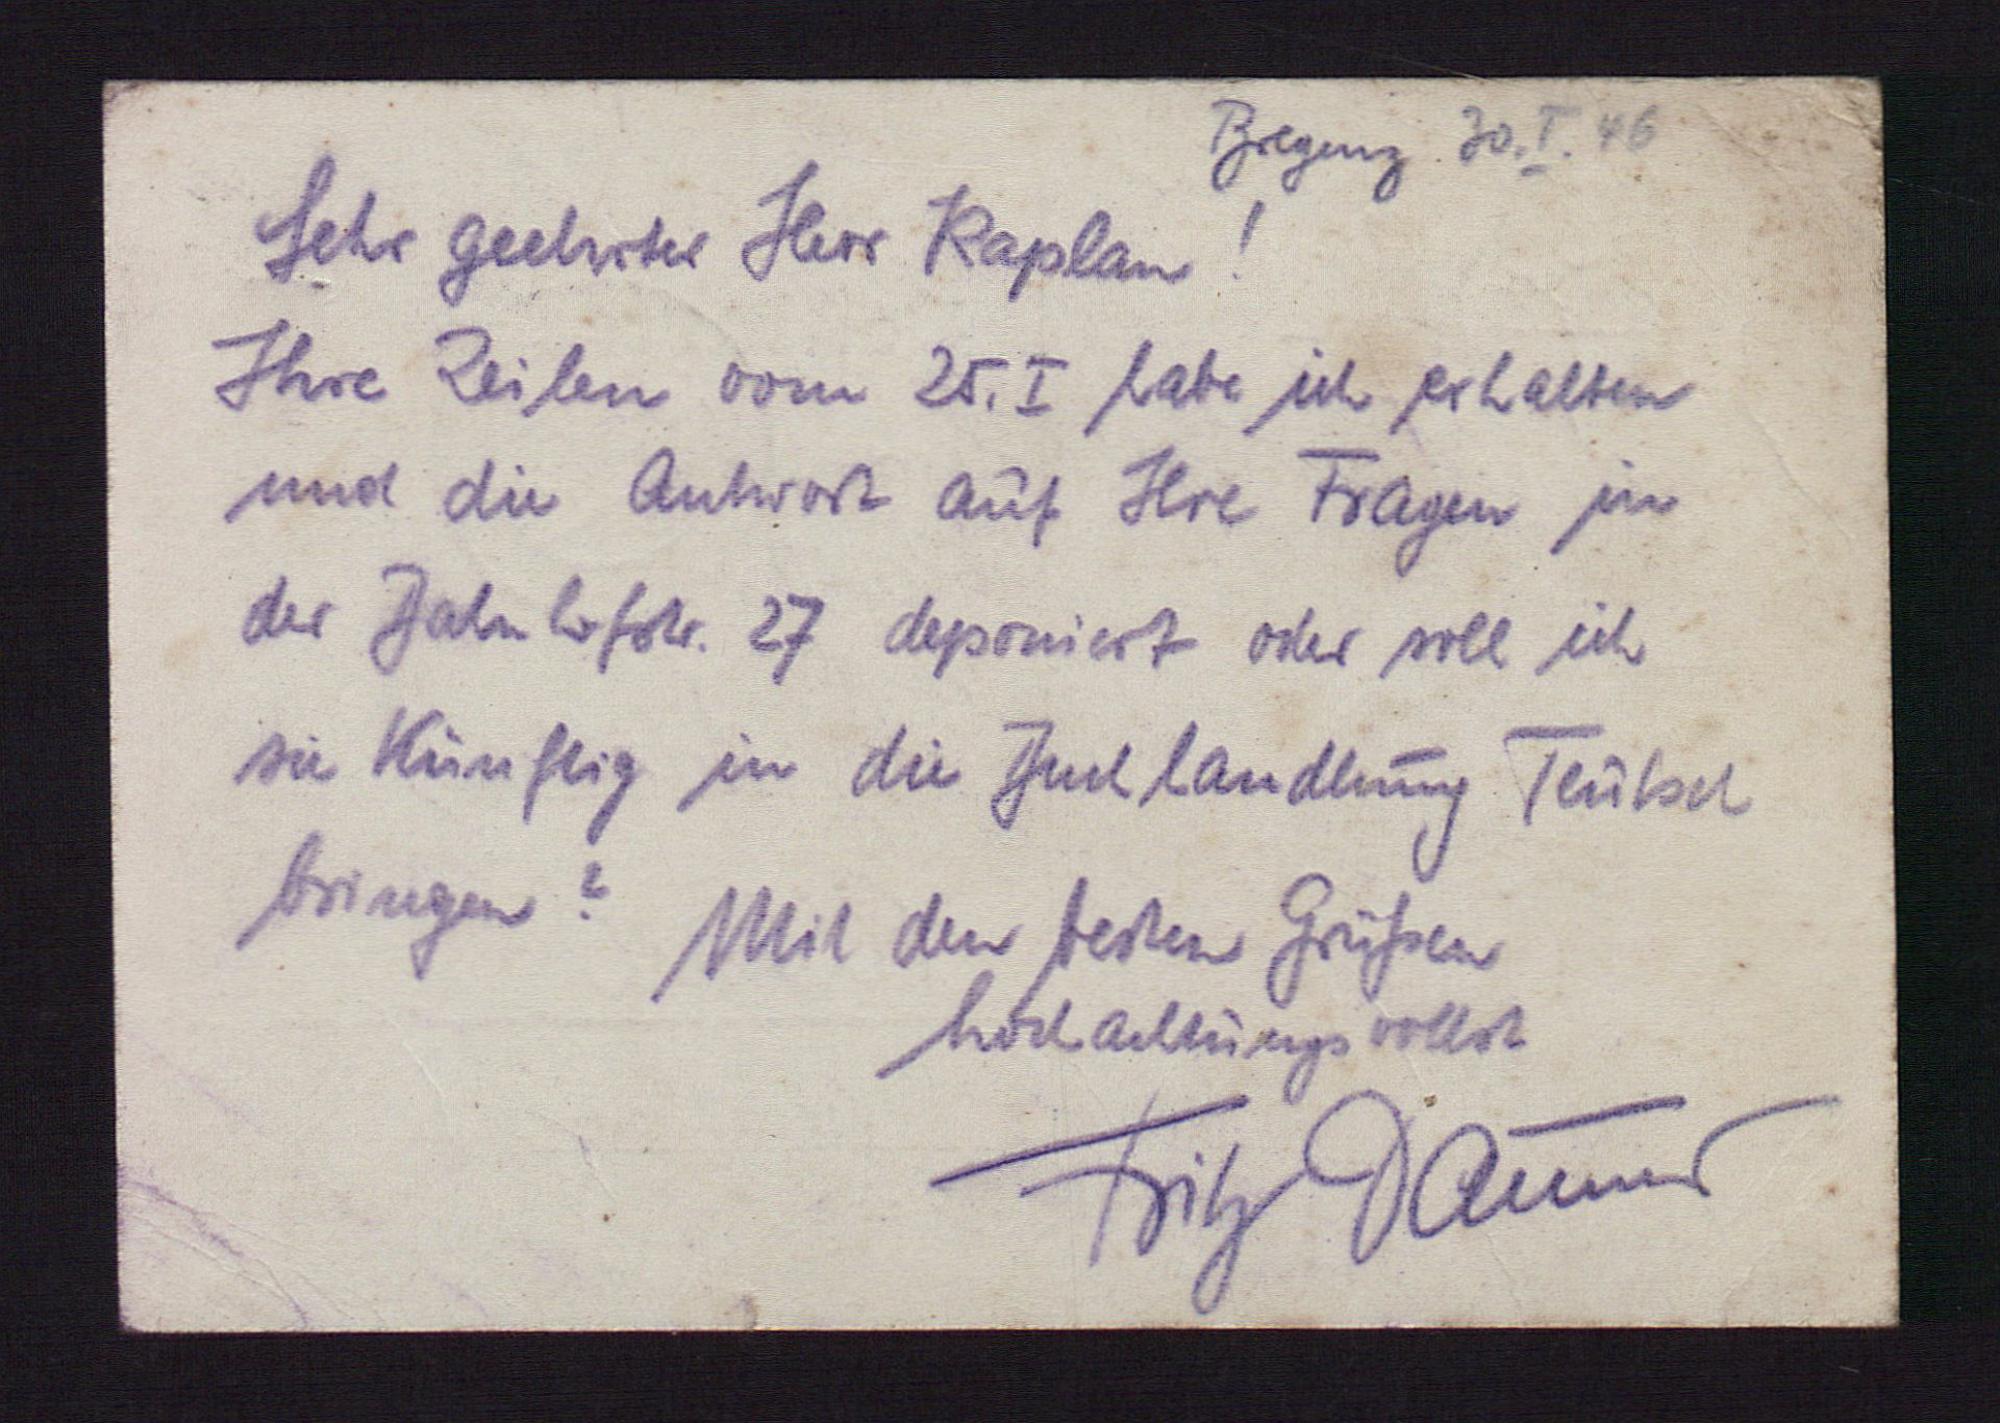 Bregenz 30.I.46
Sehr geehrter Herr Kaplan!
Ihre Zeilen vom 25.I habe ich erhalten
und die Antwort auf Ihre Fragen in
der Bahnhofstr. 27 deponiert oder soll ich
sie künftig in die Buchhandlung Teutsch
bringen? Mit den besten Grüßen
hochachtungsvollst
Fritz